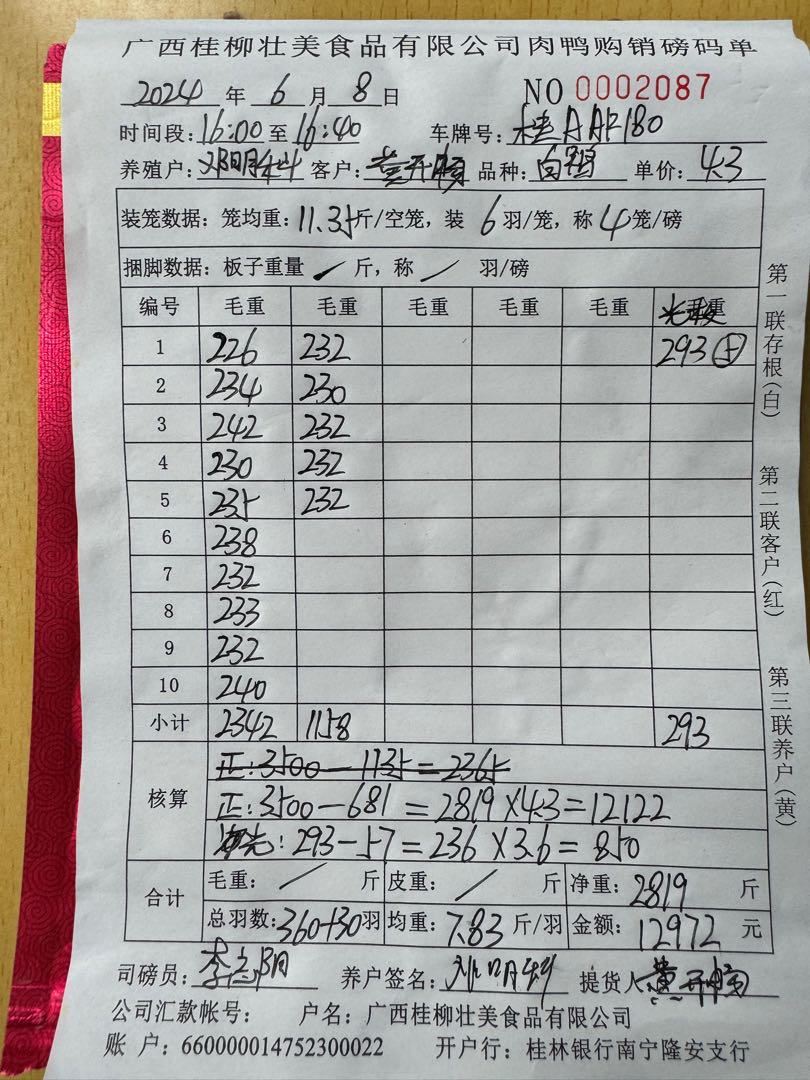 广西桂柳壮美食品有限公司肉鸭购销磅码单
2024 年 6 月 8 日 NO 0002087
时间段: 16:00 至 16:40 车牌号: 桂AAF180
养殖户: 邓明科 客户: 黄开顺 品种: 白鸭 单价: 4.3
装笼数据: 笼均重: 11.35 斤/空笼, 装 6 羽/笼, 称 4 笼/磅
捆脚数据: 板子重量 / 斤, 称 / 羽/磅
编号 毛重 毛重 毛重 毛重 毛重
1 226 232 293 ⑤
2 234 230
3 242 232
4 230 232
5 235 232
6 238
7 232
8 233
9 232
10 240
小计 2342 1158 293
核算
正: 3500-1135=2365
正: 3500-681=2819×4.3=12122
293-57=236×3.6=850
合计 毛重: / 斤 皮重: / 斤 净重: 2819 斤
总羽数: 360+30 羽 均重: 7.83 斤/羽 金额: 12972 元
司磅员: 养户签名: 邓明科 提货人
公司汇款帐号: 户名: 广西桂柳壮美食品有限公司
账 户: 660000014752300022 开户行: 桂林银行南宁隆安支行
第一联存根(白)
第二联客户(红)
第三联养户(黄)